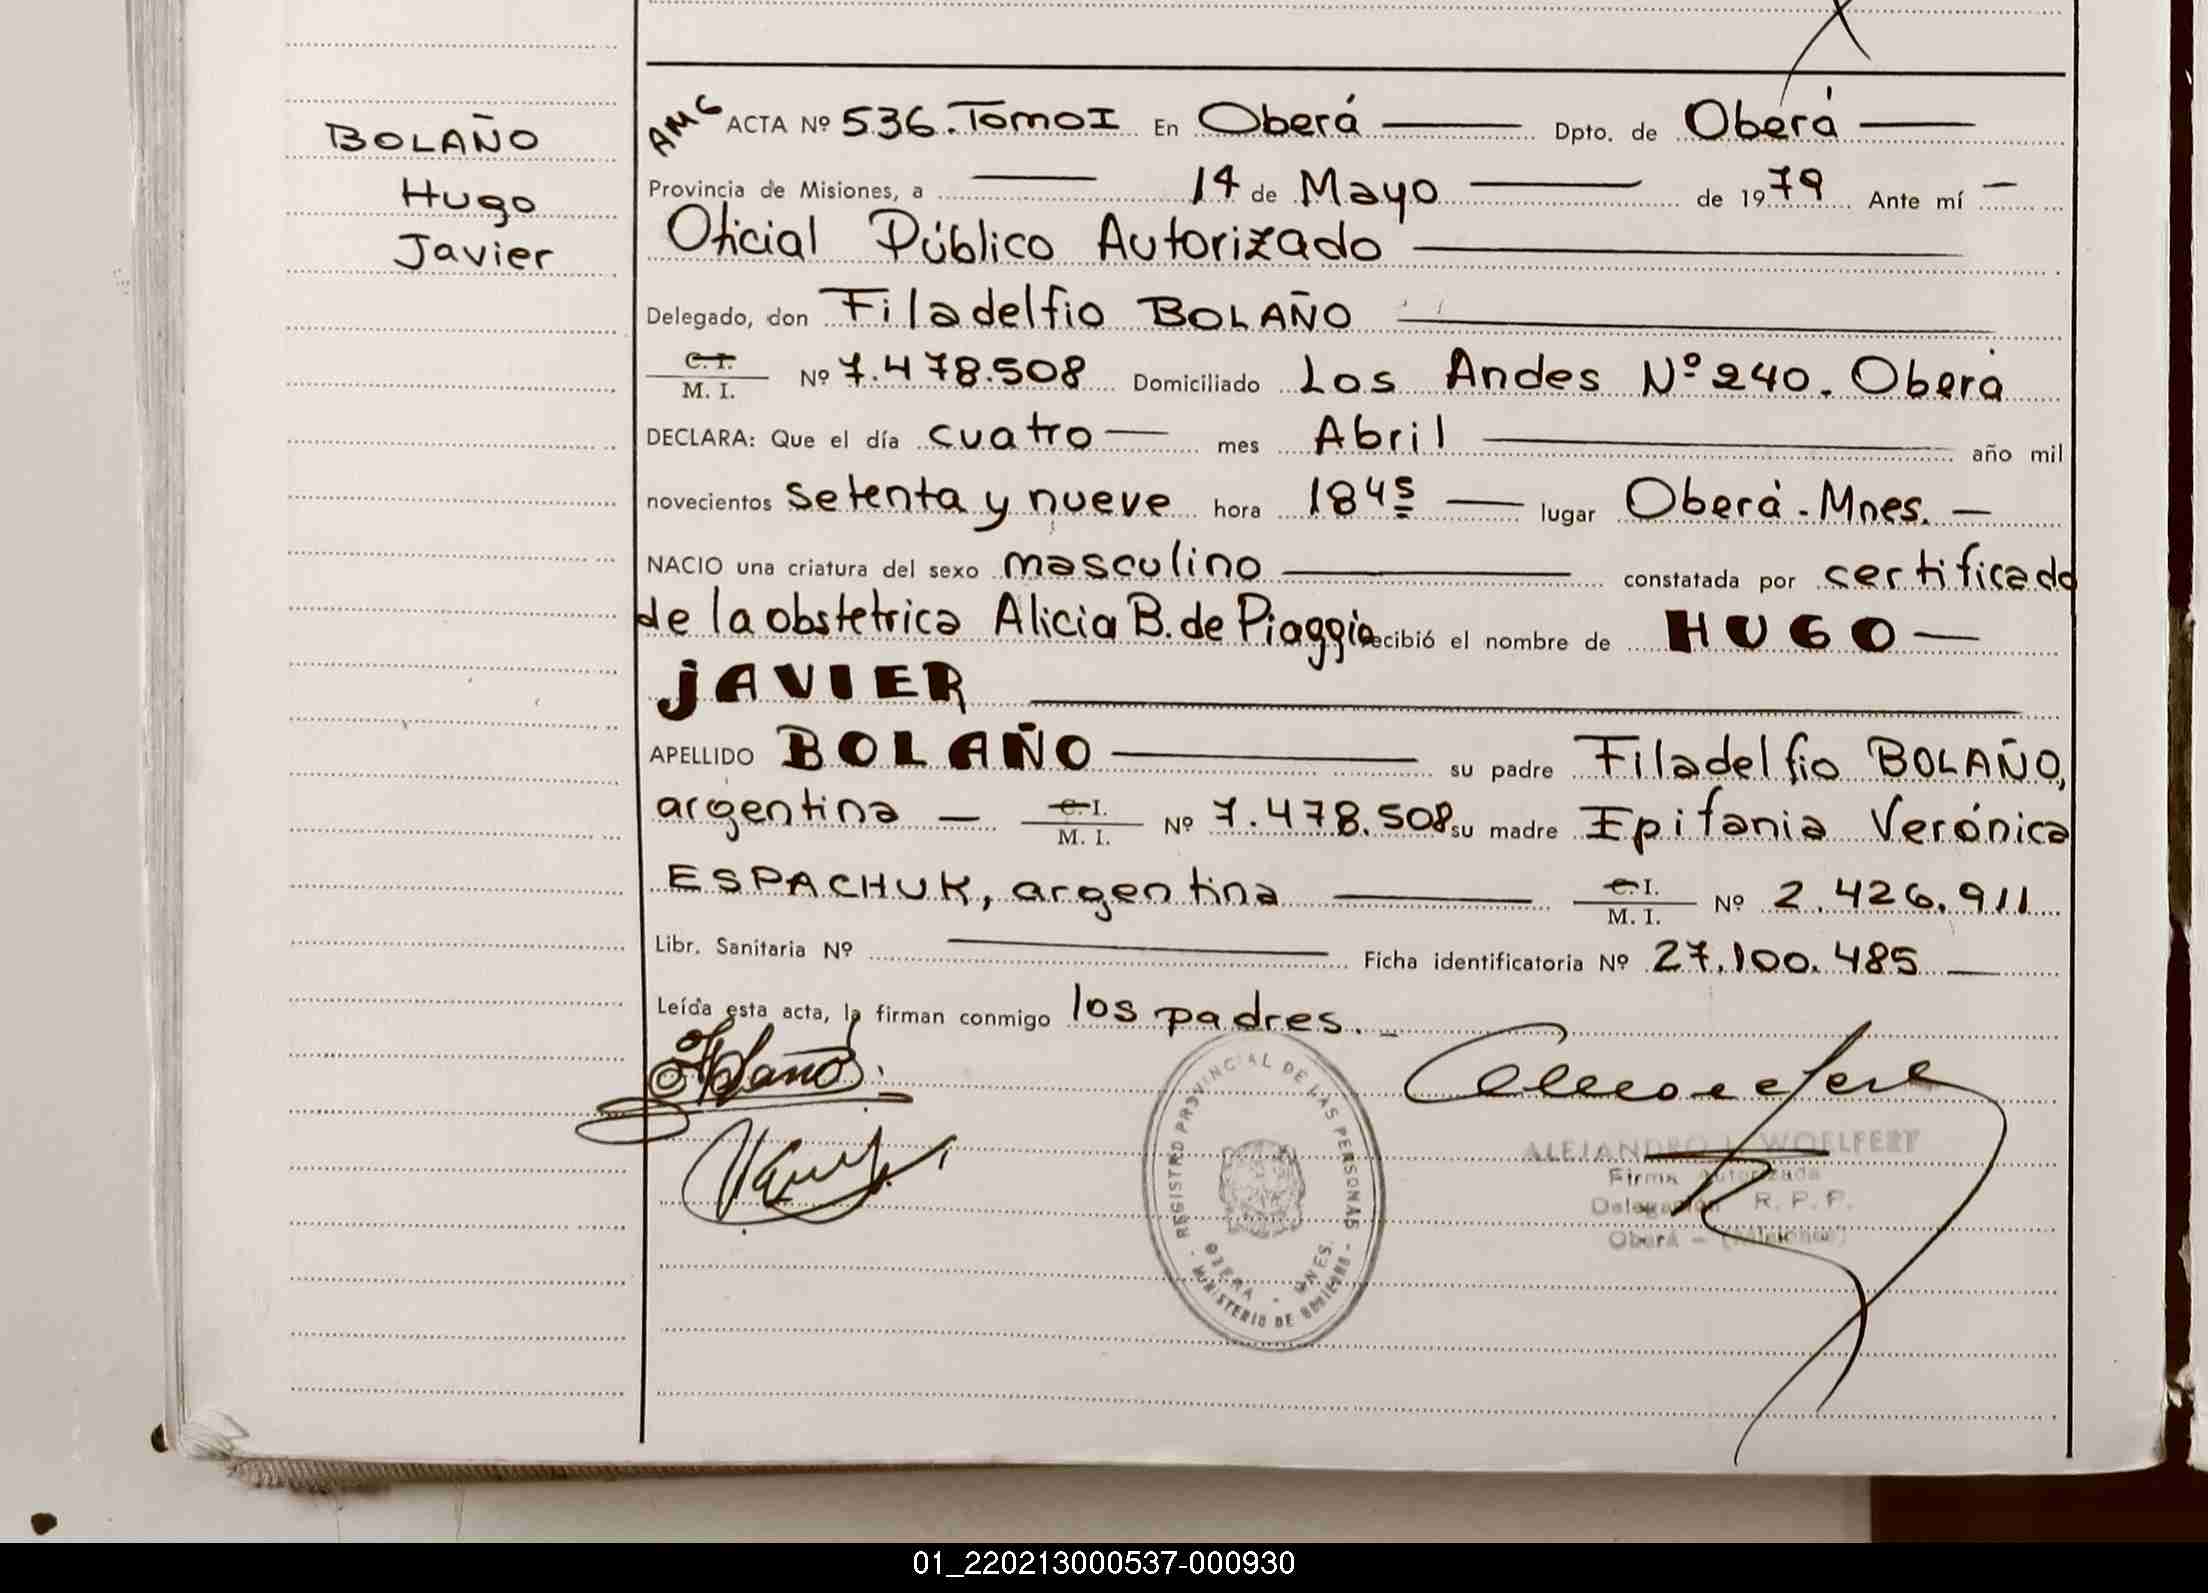 BOLAÑO
Hugo
Javier
AMG ACTA Nº 536. Tomo I En Oberá Dpto. de Oberá
Provincia de Misiones, a 14 de Mayo de 1979 Ante mí
Oficial Público Autorizado
Delegado, don Filadelfio BOLAÑO
C. I. M. I. Nº 7.478.508 Domiciliado Los Andes Nº 240. Oberá
DECLARA: Que el día cuatro mes Abril año mil
novecientos setenta y nueve hora 18 45 lugar Oberá - Mnes.
NACIO una criatura del sexo masculino constatada por certificado
de la obstetrica Alicia B. de Piaggio recibió el nombre de HUGO
JAVIER
APELLIDO BOLAÑO su padre Filadelfio BOLAÑO,
argentina C. I. M. I. Nº 7.478.508 su madre Epifania Verónica
ESPACHUK, argentina C. I. M. I. Nº 2.426.911
Libr. Sanitaria Nº Ficha identificatoria Nº 27.100.485
Leída esta acta, la firman conmigo los padres.
REGISTRO PROVINCIAL DE LAS PERSONAS
OBERA - MNES.
MINISTERIO DE GOBIERNO
ALEJANDRO L. WOELFERT
Firma Autorizada
Delegación R. P. P.
Oberá - (Misiones)
01_220213000537-000930